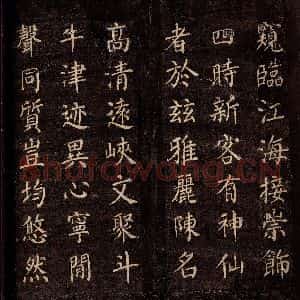 窺臨江海接崇飾
四時新客有神仙
者於兹雅麗陳名
高清遠峽文聚斗
牛津迹異心寧間
聲同質豈均悠然
Shufawang.CN